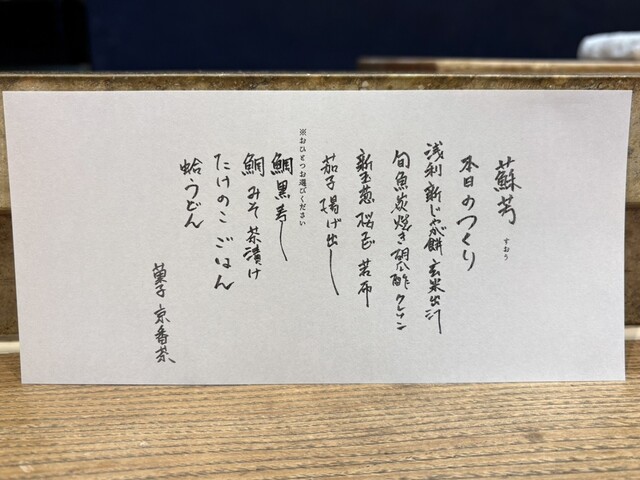 蘇芳
すおう
本日のつくり
浅利 新じゃが餅 玄米出汁
旬魚炭焼き 胡瓜酢 クレソン
新玉葱 桜色 若布
茄子 揚げ出し
※おひとつお選びください
鯛黒寿し
鯛みそ茶漬け
たけのこごはん
蛤うどん
菓子 京番茶